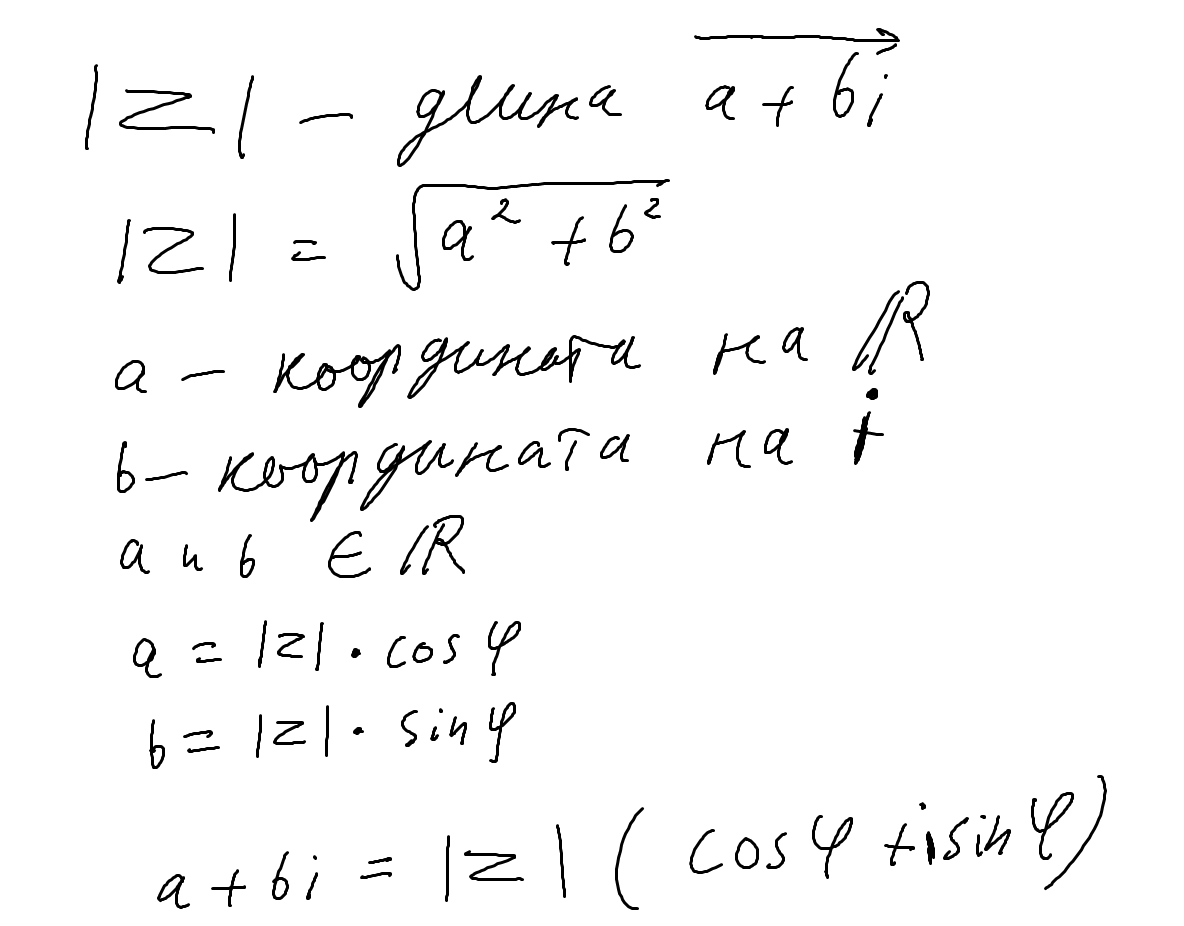 |z| – длина a + bi
|z| = √a² + b²
a – координата на ℝ
b – координата на i
a и b ∈ ℝ
a = |z| · cos φ
b = |z| · sin φ
a + bi = |z| ( cos φ + i sin φ)